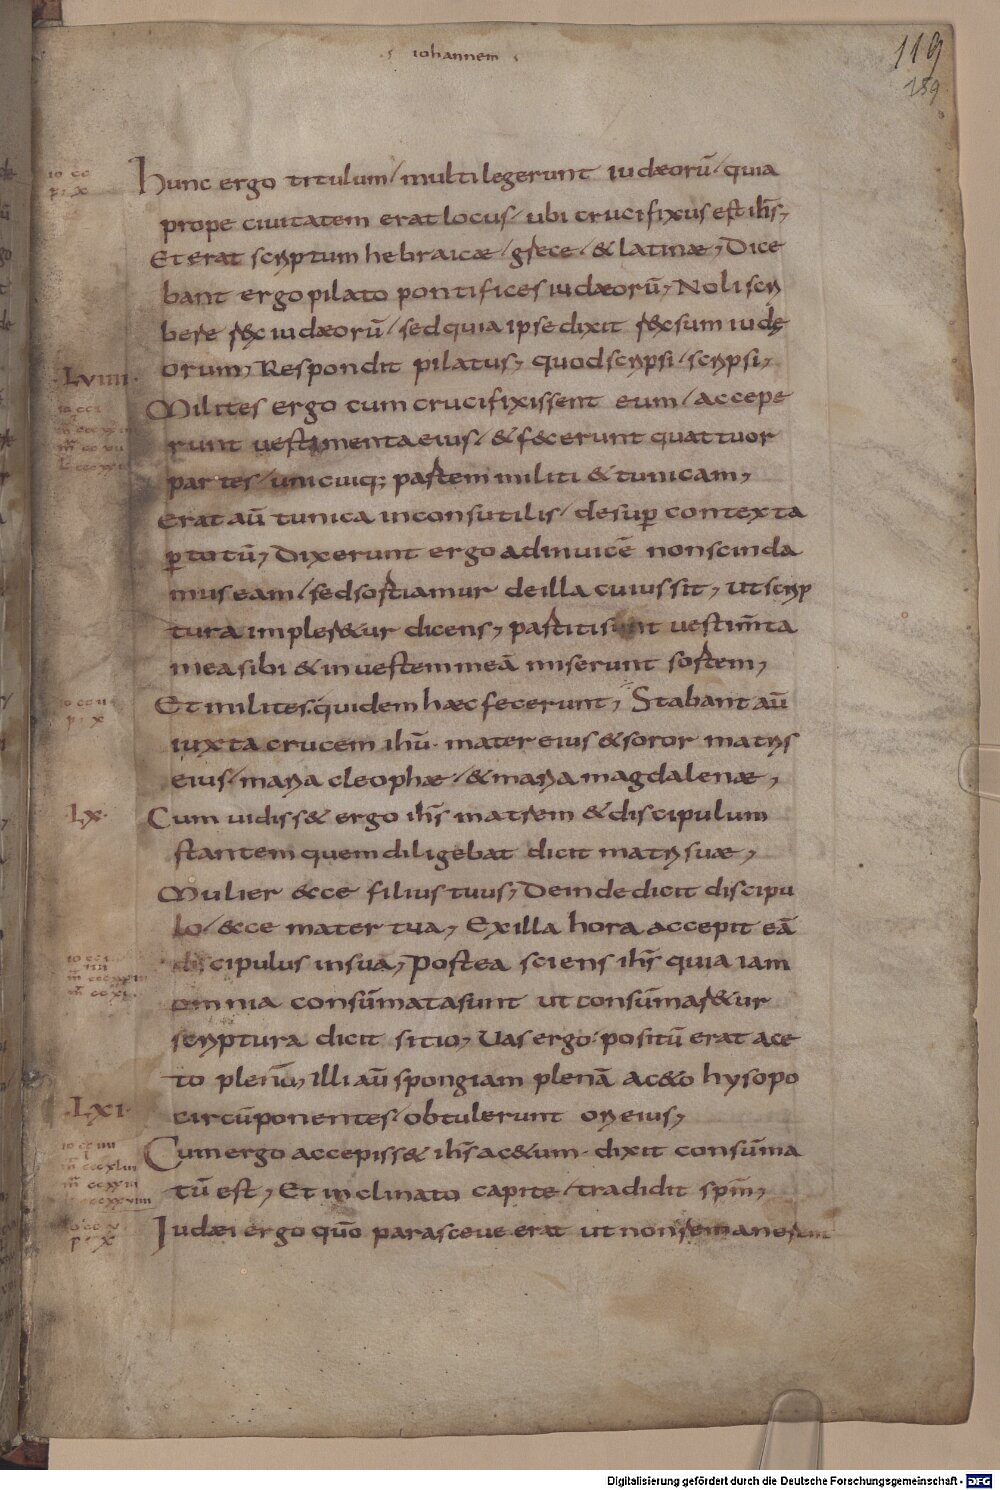 iohannem
119
159
Hunc ergo titulum / multi legerunt iudæorū / quia
prope ciuitatem erat locus / ubi crucifixus est ihs̄,
Et erat scriptum hebraicæ / grece / & latinæ, Dice
bant ergo pilato pontifices iudæorū, Noli scri
bere r&x iudæorū / sed quia ipse dixit r&x sum iudę
orum, Respondit pilatus, quod scripsi / scripsi,
·Lviiii·
Milites ergo cum crucifixissent eum / accepe
runt uestimenta eius / & f&cerunt quattuor
partes / unicuiq; partem militi & tunicam,
Erat aū tunica inconsutilis / desup̱ contexta
p̱ totū, Dixerunt ergo adinuicē non scinda
mus eam / sed sortiamur de illa cuius sit, ut scrip
tura impler&ur dicens, partiti sunt uestim̄ta
mea sibi & in uestem meā miserunt sortem,
Et milites quidem hæc fecerunt, Stabant aū
iuxta crucem ihū· mater eius & soror matris
eius / maria cleophæ / & maria magdalenæ,
·Lx·
Cum uidiss& ergo ihs̄ matrem & discipulum
stantem quem diligebat dicit matri suæ,
Mulier &cce filius tuus, Deinde dicit discipu
lo / &cce mater tua, Ex illa hora accepit eā
discipulus in sua, Postea sciens ihs̄ quia iam
omnia consūmata sunt ut consūmar&ur
scriptura dicit sitio, Uas ergo positū erat ace
to plenū, Illi aū spongiam plenā ac&o hysopo
circūponentes / obtulerunt ori eius,
·Lxi·
Cum ergo accepiss& ihs̄ ac&um · dixit consūma
tū est, Et inclinato capite / tradidit spm̄,
Iudæi ergo qūo parasceue erat ut non remanerent
Digitalisierung gefördert durch die Deutsche Forschungsgemeinschaft - DFG